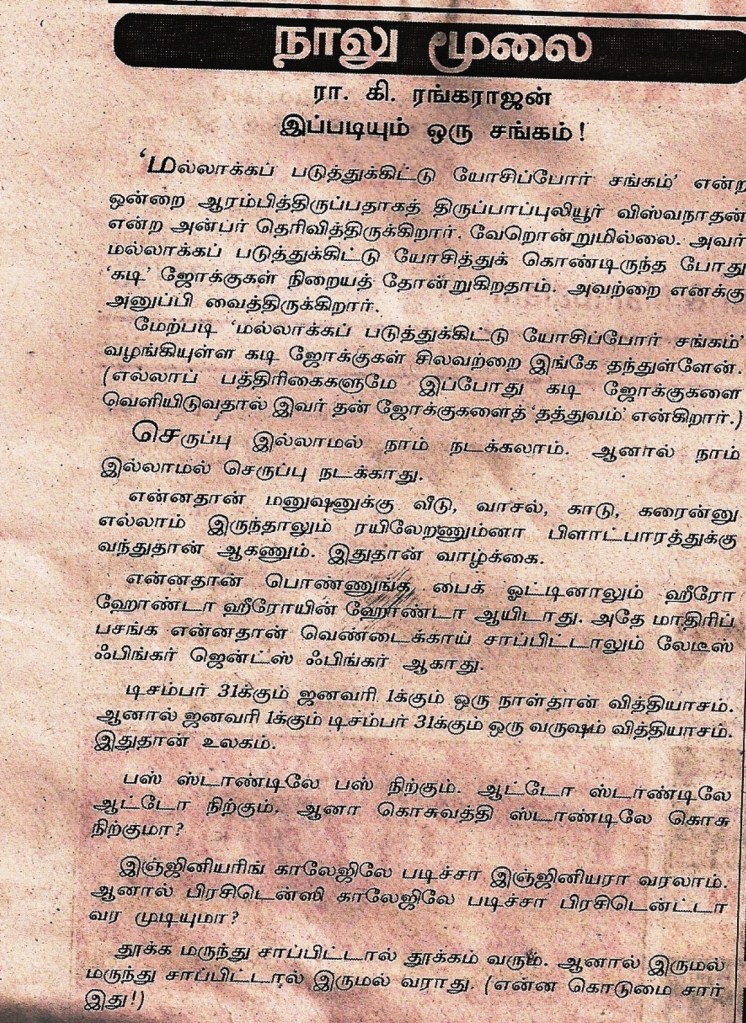 நாலு மூலை
ரா. கி. ரங்கராஜன்
இப்படியும் ஒரு சங்கம் !
'மல்லாக்கப் படுத்துக்கிட்டு யோசிப்போர் சங்கம்' என்ற
ஒன்றை ஆரம்பித்திருப்பதாகத் திருப்பாப்புலியூர் விஸ்வநாதன்
என்ற அன்பர் தெரிவித்திருக்கிறார். வேறொன்றுமில்லை. அவர்
மல்லாக்கப் படுத்துக்கிட்டு யோசித்துக் கொண்டிருந்த போது
'கடி' ஜோக்குகள் நிறையத் தோன்றுகிறதாம். அவற்றை எனக்கு
அனுப்பி வைத்திருக்கிறார்.
மேற்படி 'மல்லாக்கப் படுத்துக்கிட்டு யோசிப்போர் சங்கம்'
வழங்கியுள்ள கடி ஜோக்குகள் சிலவற்றை இங்கே தந்துள்ளேன்.
(எல்லாப் பத்திரிகைகளுமே இப்போது கடி ஜோக்குகளை
வெளியிடுவதால் இவர் தன் ஜோக்குகளைத் 'தத்துவம்' என்கிறார்.)
செருப்பு இல்லாமல் நாம் நடக்கலாம். ஆனால் நாம்
இல்லாமல் செருப்பு நடக்காது.
என்னதான் மனுஷனுக்கு வீடு, வாசல், காடு, கரைன்னு
எல்லாம் இருந்தாலும் ரயிலேறணும்னா பிளாட்பாரத்துக்கு
வந்துதான் ஆகணும். இதுதான் வாழ்க்கை.
என்னதான் பொண்ணுங்க பைக் ஓட்டினாலும் ஹீரோ
ஹோண்டா ஹீரோயின் ஹோண்டா ஆயிடாது. அதே மாதிரிப்
பசங்க என்னதான் வெண்டைக்காய் சாப்பிட்டாலும் லேடீஸ்
ஃபிங்கர் ஜென்ட்ஸ் ஃபிங்கர் ஆகாது.
டிசம்பர் 31க்கும் ஜனவரி 1க்கும் ஒரு நாள்தான் வித்தியாசம்.
ஆனால் ஜனவரி 1க்கும் டிசம்பர் 31க்கும் ஒரு வருஷம் வித்தியாசம்.
இதுதான் உலகம்.
பஸ் ஸ்டாண்டிலே பஸ் நிற்கும். ஆட்டோ ஸ்டாண்டிலே
ஆட்டோ நிற்கும். ஆனா கொசுவத்தி ஸ்டாண்டிலே கொசு
நிற்குமா?
இஞ்ஜினியரிங் காலேஜிலே படிச்சா இஞ்ஜினியரா வரலாம்.
ஆனால் பிரசிடென்ஸி காலேஜிலே படிச்சா பிரசிடென்ட்டா
வர முடியுமா?
தூக்க மருந்து சாப்பிட்டால் தூக்கம் வரும். ஆனால் இருமல்
மருந்து சாப்பிட்டால் இருமல் வராது. (என்ன கொடுமை சார்
இது!)